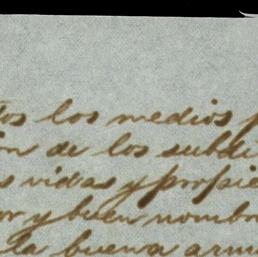 tos los medios p
ión de los subdi
s vidas y propie
or y buen nombre
la buena arm